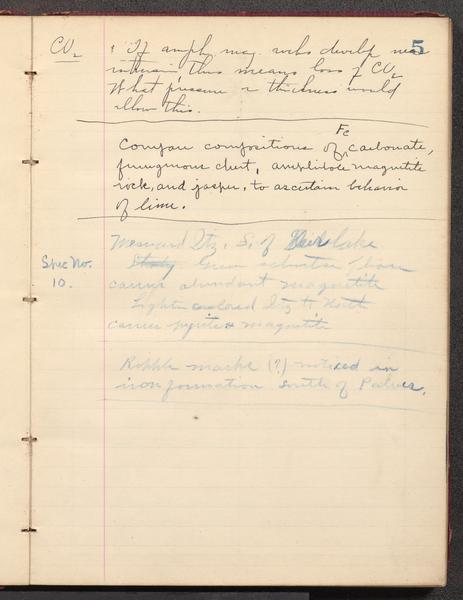 5
CO2 If amph. mag. rocks develop near
intrusion this means loss of CO2
What pressure or thickness would
allow this.
Fe
Compare compositions of carbonate,
ferruginous chert, amphibole magnetite
rock, and jasper, to ascertain behavior
of lime.
Mesnard Qtz. S. of lake
Spec No. Study Green schistose
10. carries abundant magnetite
Lighter colored Qtz to North
carries pyrite & magnetite
Ripple marks (?) noticed in
iron formation south of Palmer.